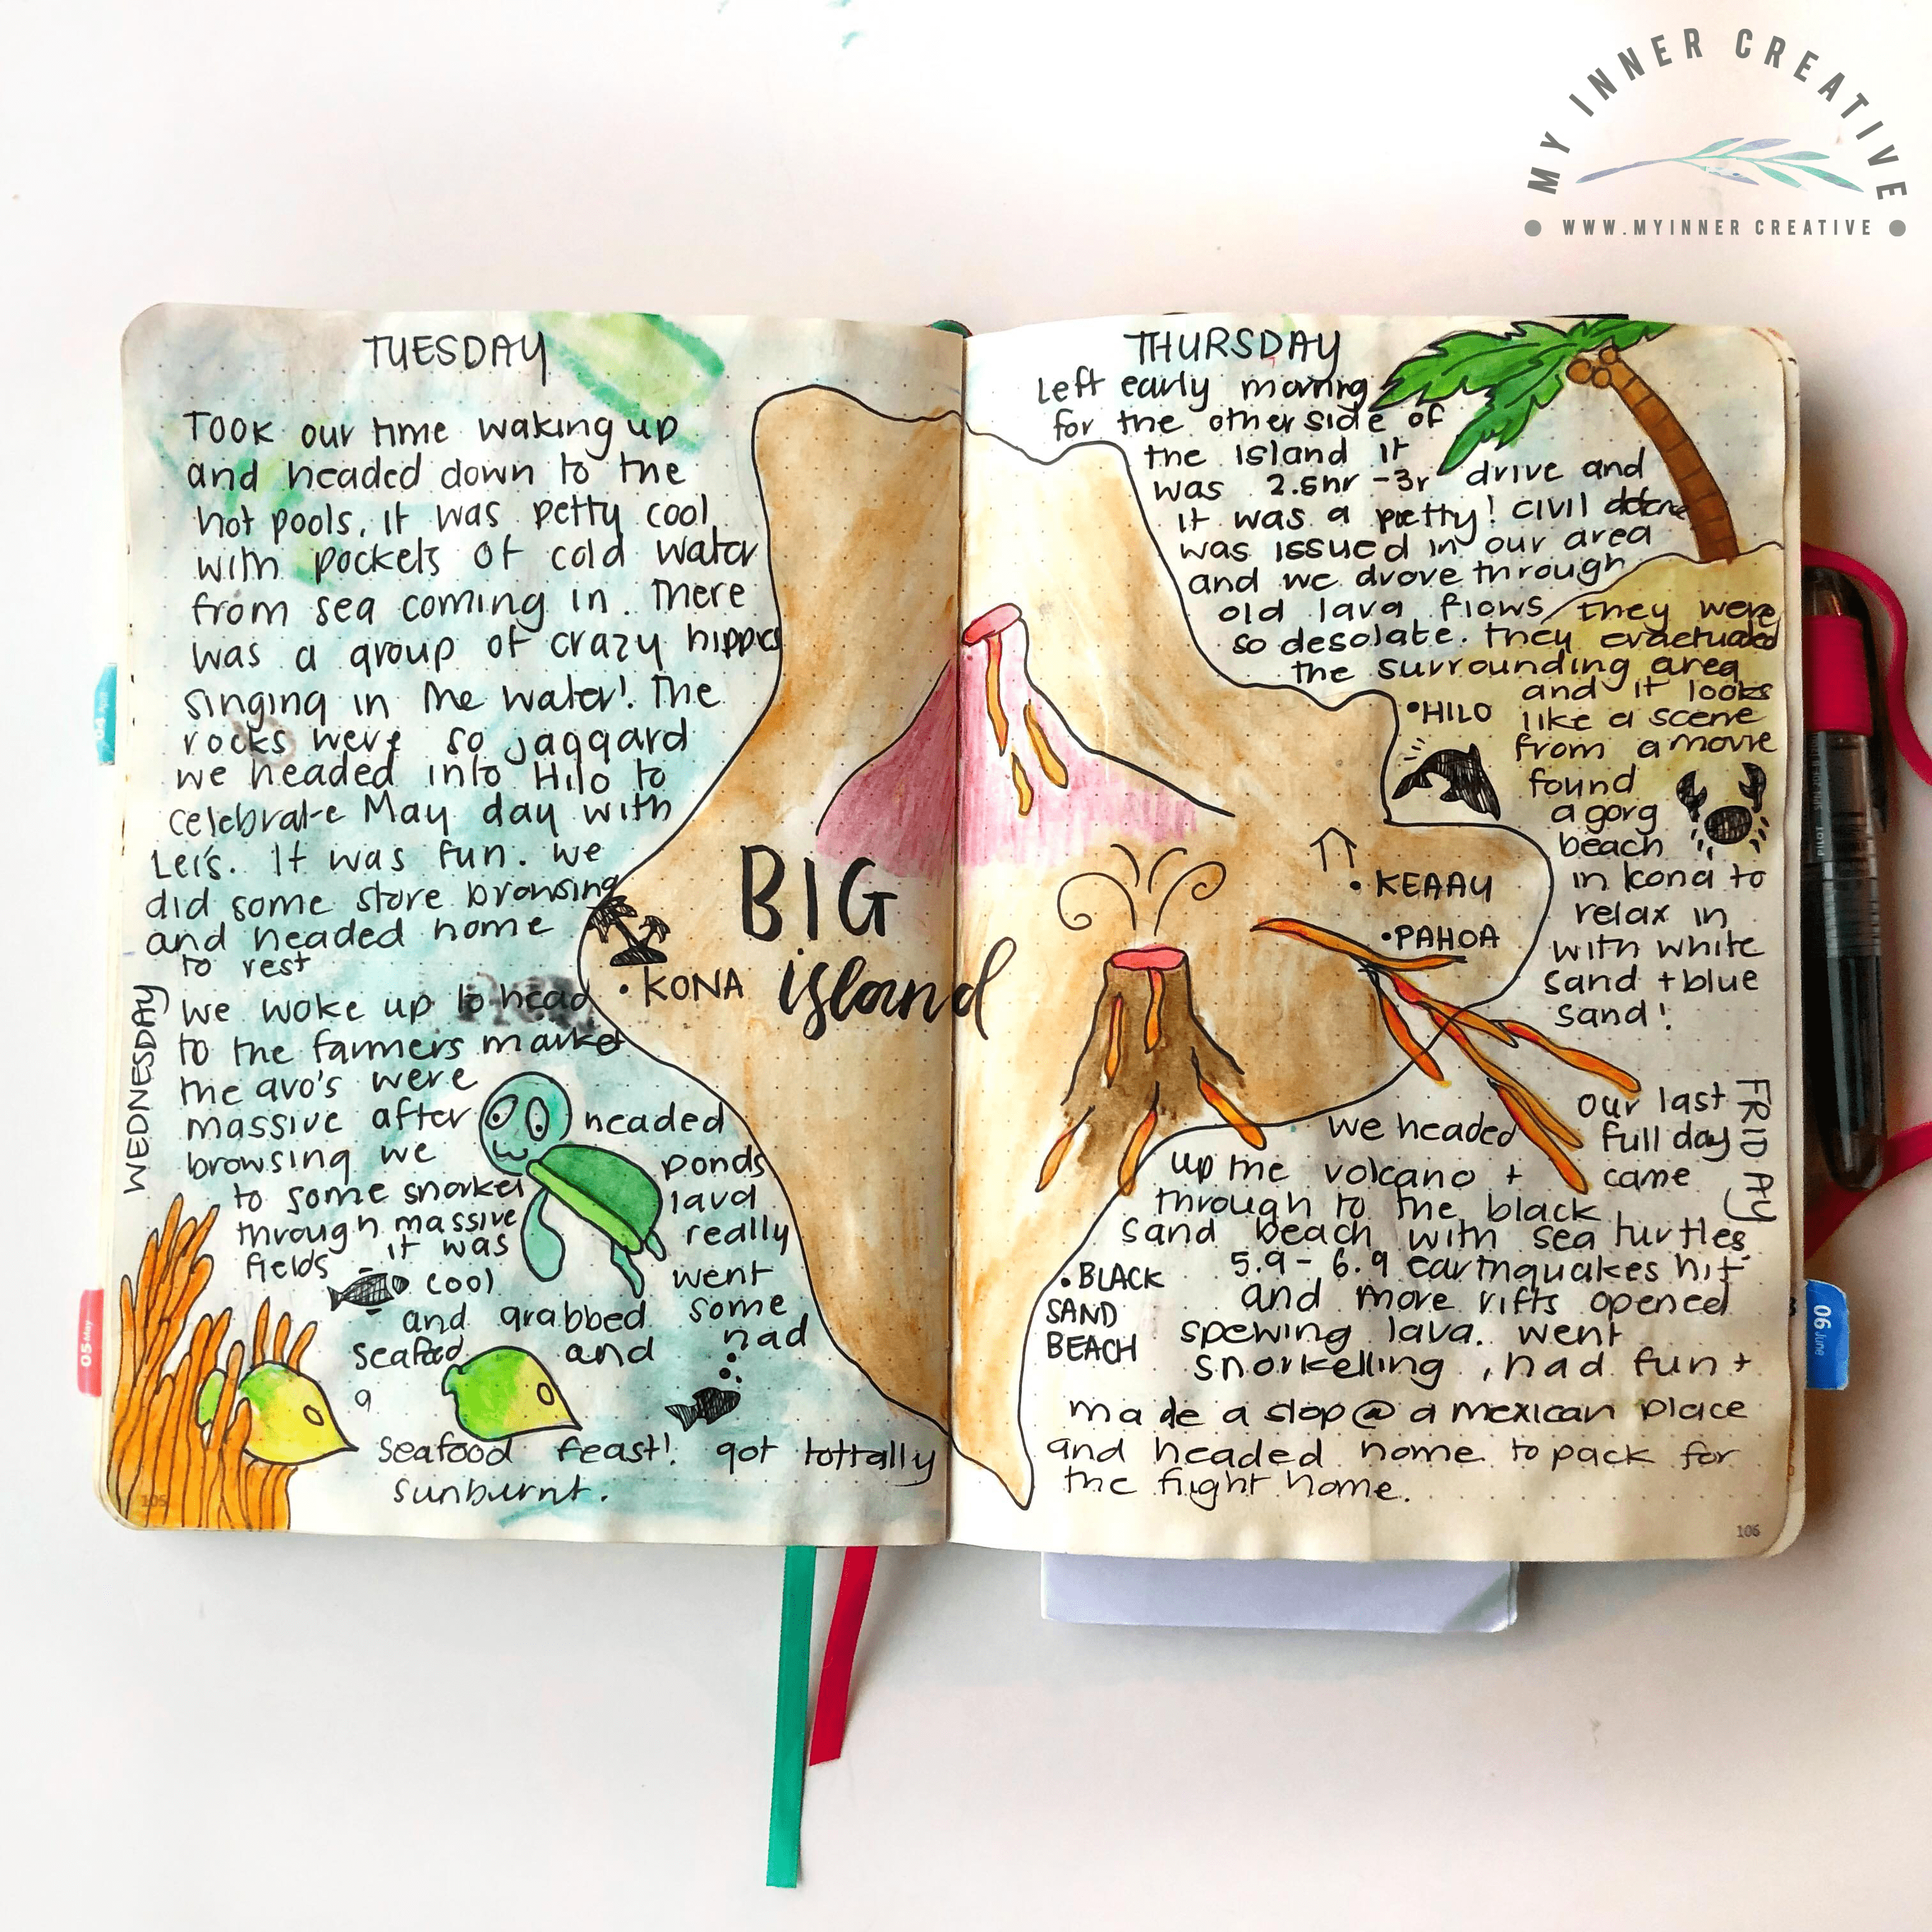 MY INNER CREATIVE
WWW.MYINNER CREATIVE
TUESDAY
TOOK our time waking up
and headed down to the
hot pools, it was petty cool
with pockets of cold water
from sea coming in. There
was a group of crazy hippies
singing in the water! The
rocks were so jaggard
we headed into Hilo to
celebrate May day with
Lei's. It was fun. We
did some store browsing
and headed home
to rest
WEDNESDAY
we woke up to head
to the farmers market
the avo's were
massive after headed
browsing we ponds
to some snorkel lava
through massive really
fields it was went
cool some
and grabbed had
seafood and
a
seafood feast! got tottally
sunburnt.
105
BIG
island
• KONA
THURSDAY
Left early morning
for the other side of
the island it
was 2.5hr -3r drive and
it was a pretty! civil defence
was issued in our area
and we drove through
old lava flows they were
so desolate. they evactuated
the surrounding area
and it looks
like a scene
from a movie
found
a gorg
beach
in kona to
relax in
with white
sand + blue
sand!
• HILO
• KEAAU
• PAHOA
• BLACK
SAND
BEACH
FRIDAY
our last
full day
came
we headed
up the volcano +
through to the black
sand beach with sea turtles
5.9 - 6.9 earthquakes hit
and more rifts opened
spewing lava. went
snorkelling, had fun +
made a stop @ a mexican place
and headed home to pack for
the flight home.
106
05 May
06 June